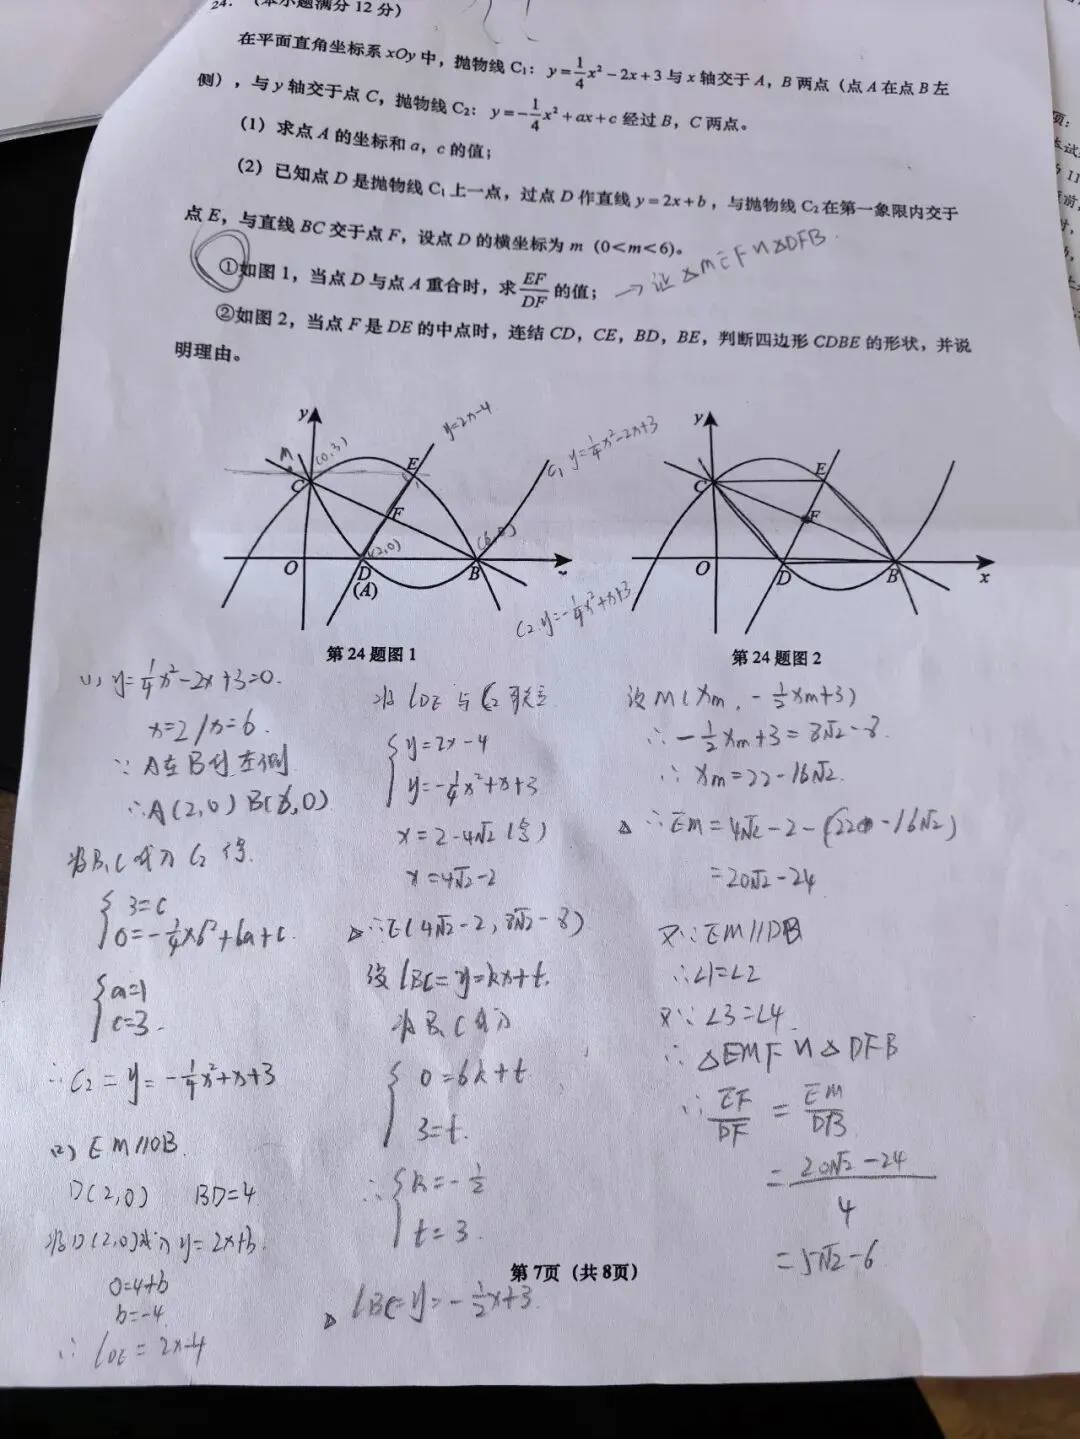 24. （本小题满分 12 分）
在平面直角坐标系 xOy 中，抛物线 C₁：y=\frac{1}{4}x²－2x＋3 与 x 轴交于 A，B 两点（点 A 在点 B 左
侧），与 y 轴交于点 C，抛物线 C₂：y=－\frac{1}{4}x²＋ax＋c 经过 B，C 两点。
（1）求点 A 的坐标和 a，c 的值；
（2）已知点 D 是抛物线 C₁ 上一点，过点 D 作直线 y＝2x＋b，与抛物线 C₂ 在第一象限内交于
点 E，与直线 BC 交于点 F，设点 D 的横坐标为 m（0<m<6）。
①如图 1，当点 D 与点 A 重合时，求\frac{EF}{DF}的值；
→证 △MEF∽△DFB
②如图 2，当点 F 是 DE 的中点时，连结 CD，CE，BD，BE，判断四边形 CDBE 的形状，并说
明理由。
y
y=2x-4
M
(0,3)
C
E
F
(2,0)
O
D
(A)
B
C₁ y=\frac{1}{4}x²-2x+3
C₂.y=-\frac{1}{4}x²+x+3
第 24 题图 1
y
C
E
F
O
D
B
x
第 24 题图 2
(1) y=\frac{1}{4}x²-2x+3=0.
x=2/x=6.
∵A在B的左侧
∴A(2,0) B(6,0)
将B,C代入C₂得.
3=c
0=-\frac{1}{4}×6²+6a+c.
a=1
c=3.
∴C₂=y=-\frac{1}{4}x²+x+3
(2) EM//OB.
D(2,0) BD=4
将D(2,0)代入y=2x+b.
0=4+b
b=-4.
∴l_{DE}=2x-4
将l_{DE}与C₂联立
y=2x-4
y=-\frac{1}{4}x²+x+3
x=2-4√2(舍)
x=4√2-2
∴E(4√2-2,8√2-8)
设l_{BC}=y=kx+t.
将B,C代入
0=6k+t
3=t.
∴k=-\frac{1}{2}
t=3.
l_{BC}=y=-\frac{1}{2}x+3.
设M(x_m,-\frac{1}{2}x_m+3)
∴-\frac{1}{2}x_m+3=8√2-8.
∴x_m=22-16√2.
∴EM=4√2-2-(22-16√2)
=20√2-24
又∵EM//DB
∴∠1=∠2
又∵∠3=∠4
∴△EMF∽△DFB
∴\frac{EF}{DF}=\frac{EM}{DB}
=\frac{20√2-24}{4}
=5√2-6
第 7页（共 8页）